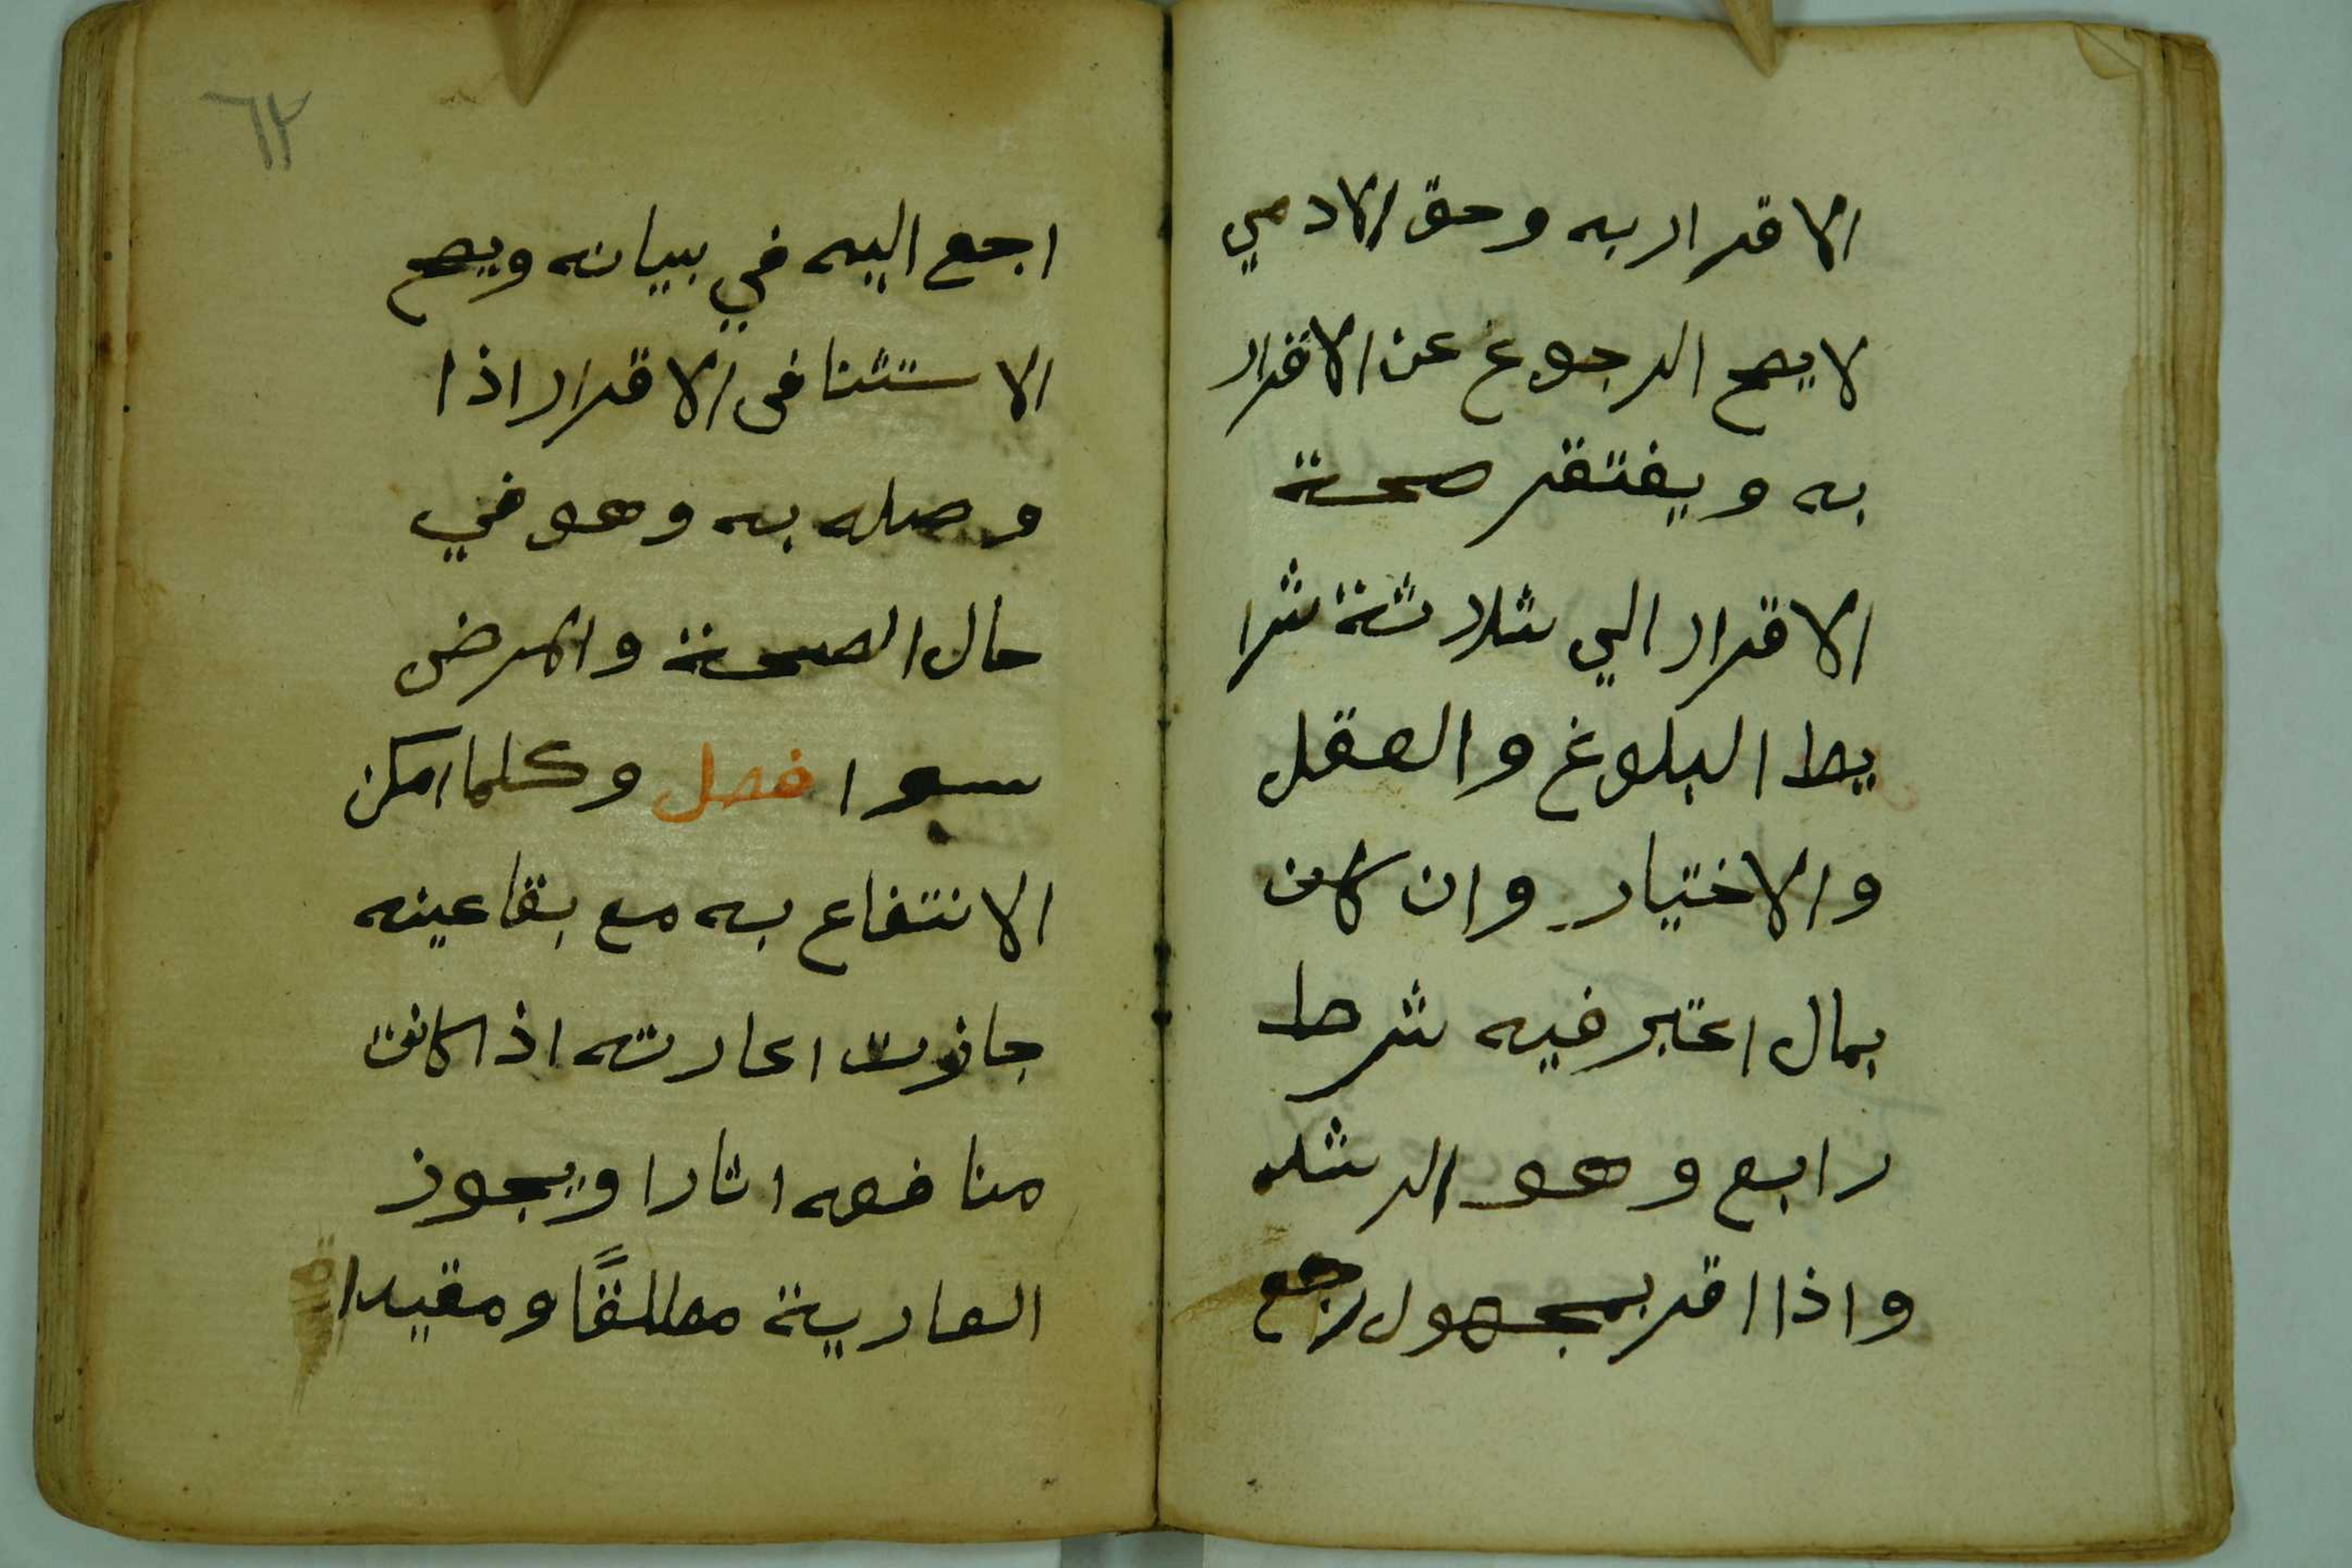 الاقرار به وحق الادمي
لا يصح الرجوع عن الاقرار
به ويفتقر صحة
الاقرار الي ثلاثة شرا
يط البلوغ والعقل
والاختيار وان كان
بمال اعتبر فيه شرط
رابع وهو الرشد
واذا اقر بمجهول رجع
٦٢
اجع اليه في بيانه ويصح
الاستثنا فى الاقرار اذا
وصله به وهو في
حال الصحة والمرض
سوا فصل وكلما امكن
الانتفاع به مع بقا عينه
جازت اعارته اذا كانت
منافعه اثارا ويجوز
العارية مطلقًا ومقيدا